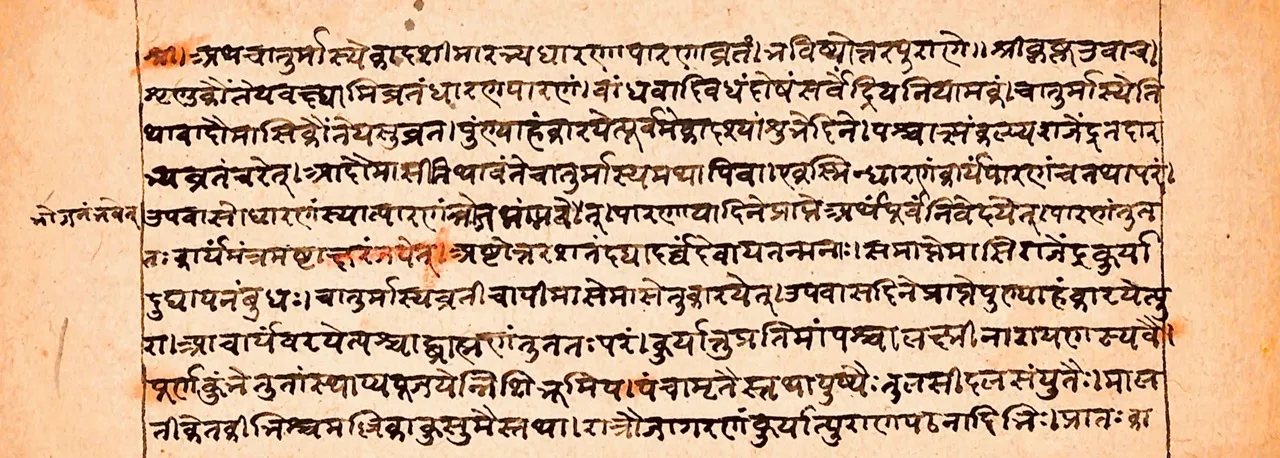 श्री। अथ चातुर्मास्येकादशीमारभ्य धारणापारणाव्रतं। भविष्योत्तरपुराणे॥ श्रीकृष्ण उवाच।
शृणु कौंतेय वक्ष्यामि व्रतं धारणपारणं। बांधवादिवधं दोषं सर्वेंद्रियनियामकं। चातुर्मास्येति
थवादौ मासि कौंतेय सुव्रत। पुंण्याहं कारयेत्पूर्वमेकादश्यां शुभे दिने। पश्चात्संकल्प्य राजेंद्र तदार
भ्य व्रतं चरेत्। आदौ मासी तिथावंते चातुर्मास्यमथापि वा। एकस्मिन्धारणं कार्यं पारणं च तथापरं।
भोजनं भवेत्
उपवासो धारणं स्यात्पारणं भवेत्। पारणाया दिने प्राप्ते अर्थं पूर्वं निवेदयेत्। पारणं तु त
तः कार्यं मंत्रमष्टाक्षरं जपेत्। अष्टोत्तरशतं दद्यादर्घ्यं देवाय तन्मनाः। समाप्ते मासि राजेंद्र कुर्या
दुद्यापनं बुधः। चातुर्मास्यव्रती चापी मासे मासे तु कारयेत्। उपवासदिने प्राप्ते पुण्याहं कारयेत्पु
रा। आचार्यं वरयेत्पश्चाद्ब्राह्मणं तु ततः परं। कुर्यात्तु प्रतिमां पश्चाल्लक्ष्मीनारायणस्य वै।
पूर्णकुंभे तु तां स्थाप्य पूजयेन्निशि भूमिप। पंचामृतैस्तथा पुष्पैः तुलसीदलसंयुतैः। माल
तीकेतकीभिश्च मल्लिकाकुसुमैस्तथा। रात्रौ जागरणं कुर्यात्पुराणपठनादिभिः। प्रातःका